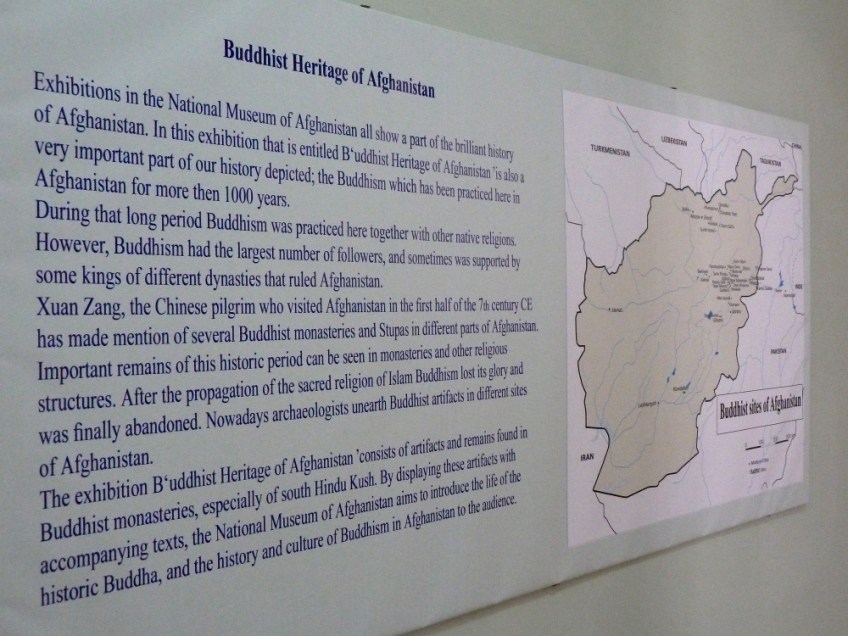 Buddhist Heritage of Afghanistan
Exhibitions in the National Museum of Afghanistan all show a part of the brilliant history
of Afghanistan. In this exhibition that is entitled B‘uddhist Heritage of Afghanistan ’is also a
very important part of our history depicted; the Buddhism which has been practiced here in
Afghanistan for more then 1000 years.
During that long period Buddhism was practiced here together with other native religions.
However, Buddhism had the largest number of followers, and sometimes was supported by
some kings of different dynasties that ruled Afghanistan.
Xuan Zang, the Chinese pilgrim who visited Afghanistan in the first half of the 7th century CE
has made mention of several Buddhist monasteries and Stupas in different parts of Afghanistan.
Important remains of this historic period can be seen in monasteries and other religious
structures. After the propagation of the sacred religion of Islam Buddhism lost its glory and
was finally abandoned. Nowadays archaeologists unearth Buddhist artifacts in different sites
of Afghanistan.
The exhibition B‘uddhist Heritage of Afghanistan ’consists of artifacts and remains found in
Buddhist monasteries, especially of south Hindu Kush. By displaying these artifacts with
accompanying texts, the National Museum of Afghanistan aims to introduce the life of the
historic Buddha, and the history and culture of Buddhism in Afghanistan to the audience.
UZBEKISTAN
TURKMENISTAN
TAJIKISTAN
PAKISTAN
IRAN
Buddhist sites of Afghanistan